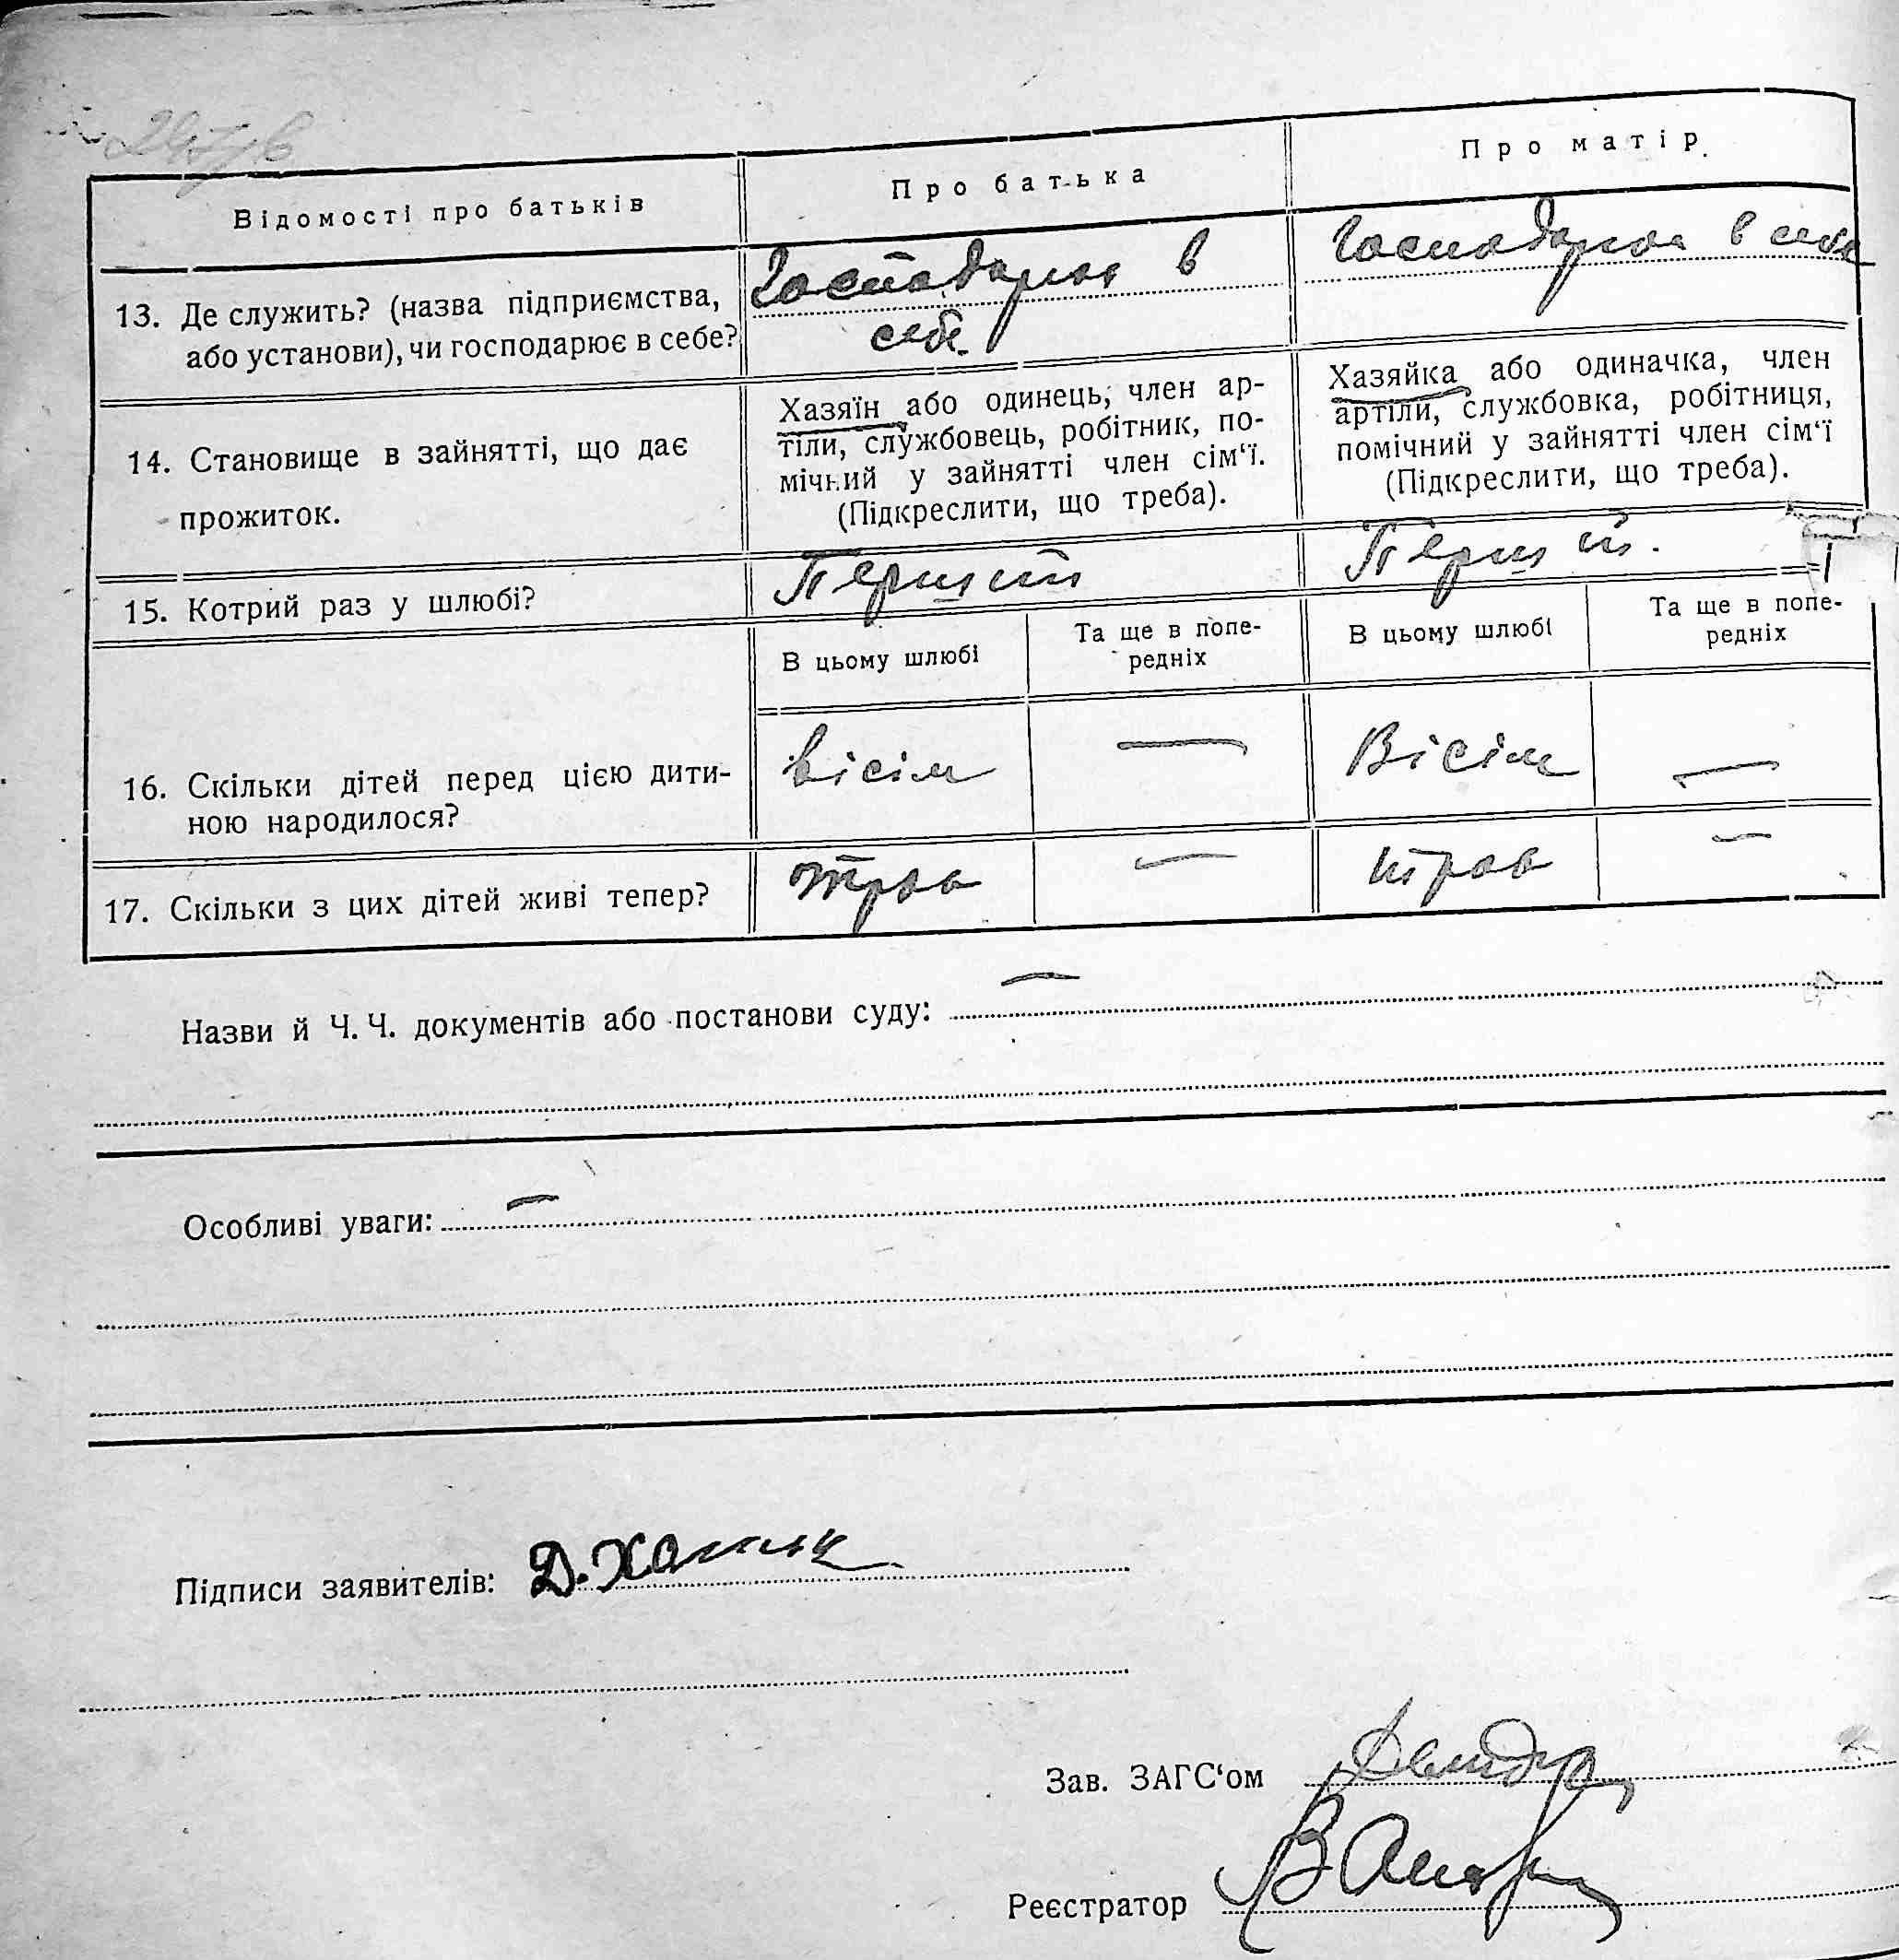 Відомості про батьків
Про батька
Про матір
13. Де служить? (назва підприємства,
або установи), чи господарює в себе?
Господарює в
себе.
Господарює в себе
14. Становище в зайнятті, що дає
прожиток.
Хазяїн або одинець, член ар-
тіли, службовець, робітник, по-
мічний у зайнятті член сім‘ї.
(Підкреслити, що треба).
Хазяйка або одиначка, член
артіли, службовка, робітниця,
помічний у зайнятті член сім‘ї
(Підкреслити, що треба).
15. Котрий раз у шлюбі?
Перший
Перший.
В цьому шлюбі
Та ще в попе-
редніх
В цьому шлюбі
Та ще в попе-
редніх
16. Скільки дітей перед цією дити-
ною народилося?
вісім
—
Вісім
—
17. Скільки з цих дітей живі тепер?
троє
—
троє
—
Назви й Ч. Ч. документів або постанови суду: —
Особливі уваги: —
Підписи заявителів: Д.
Зав. ЗАГС‘ом
Реєстратор